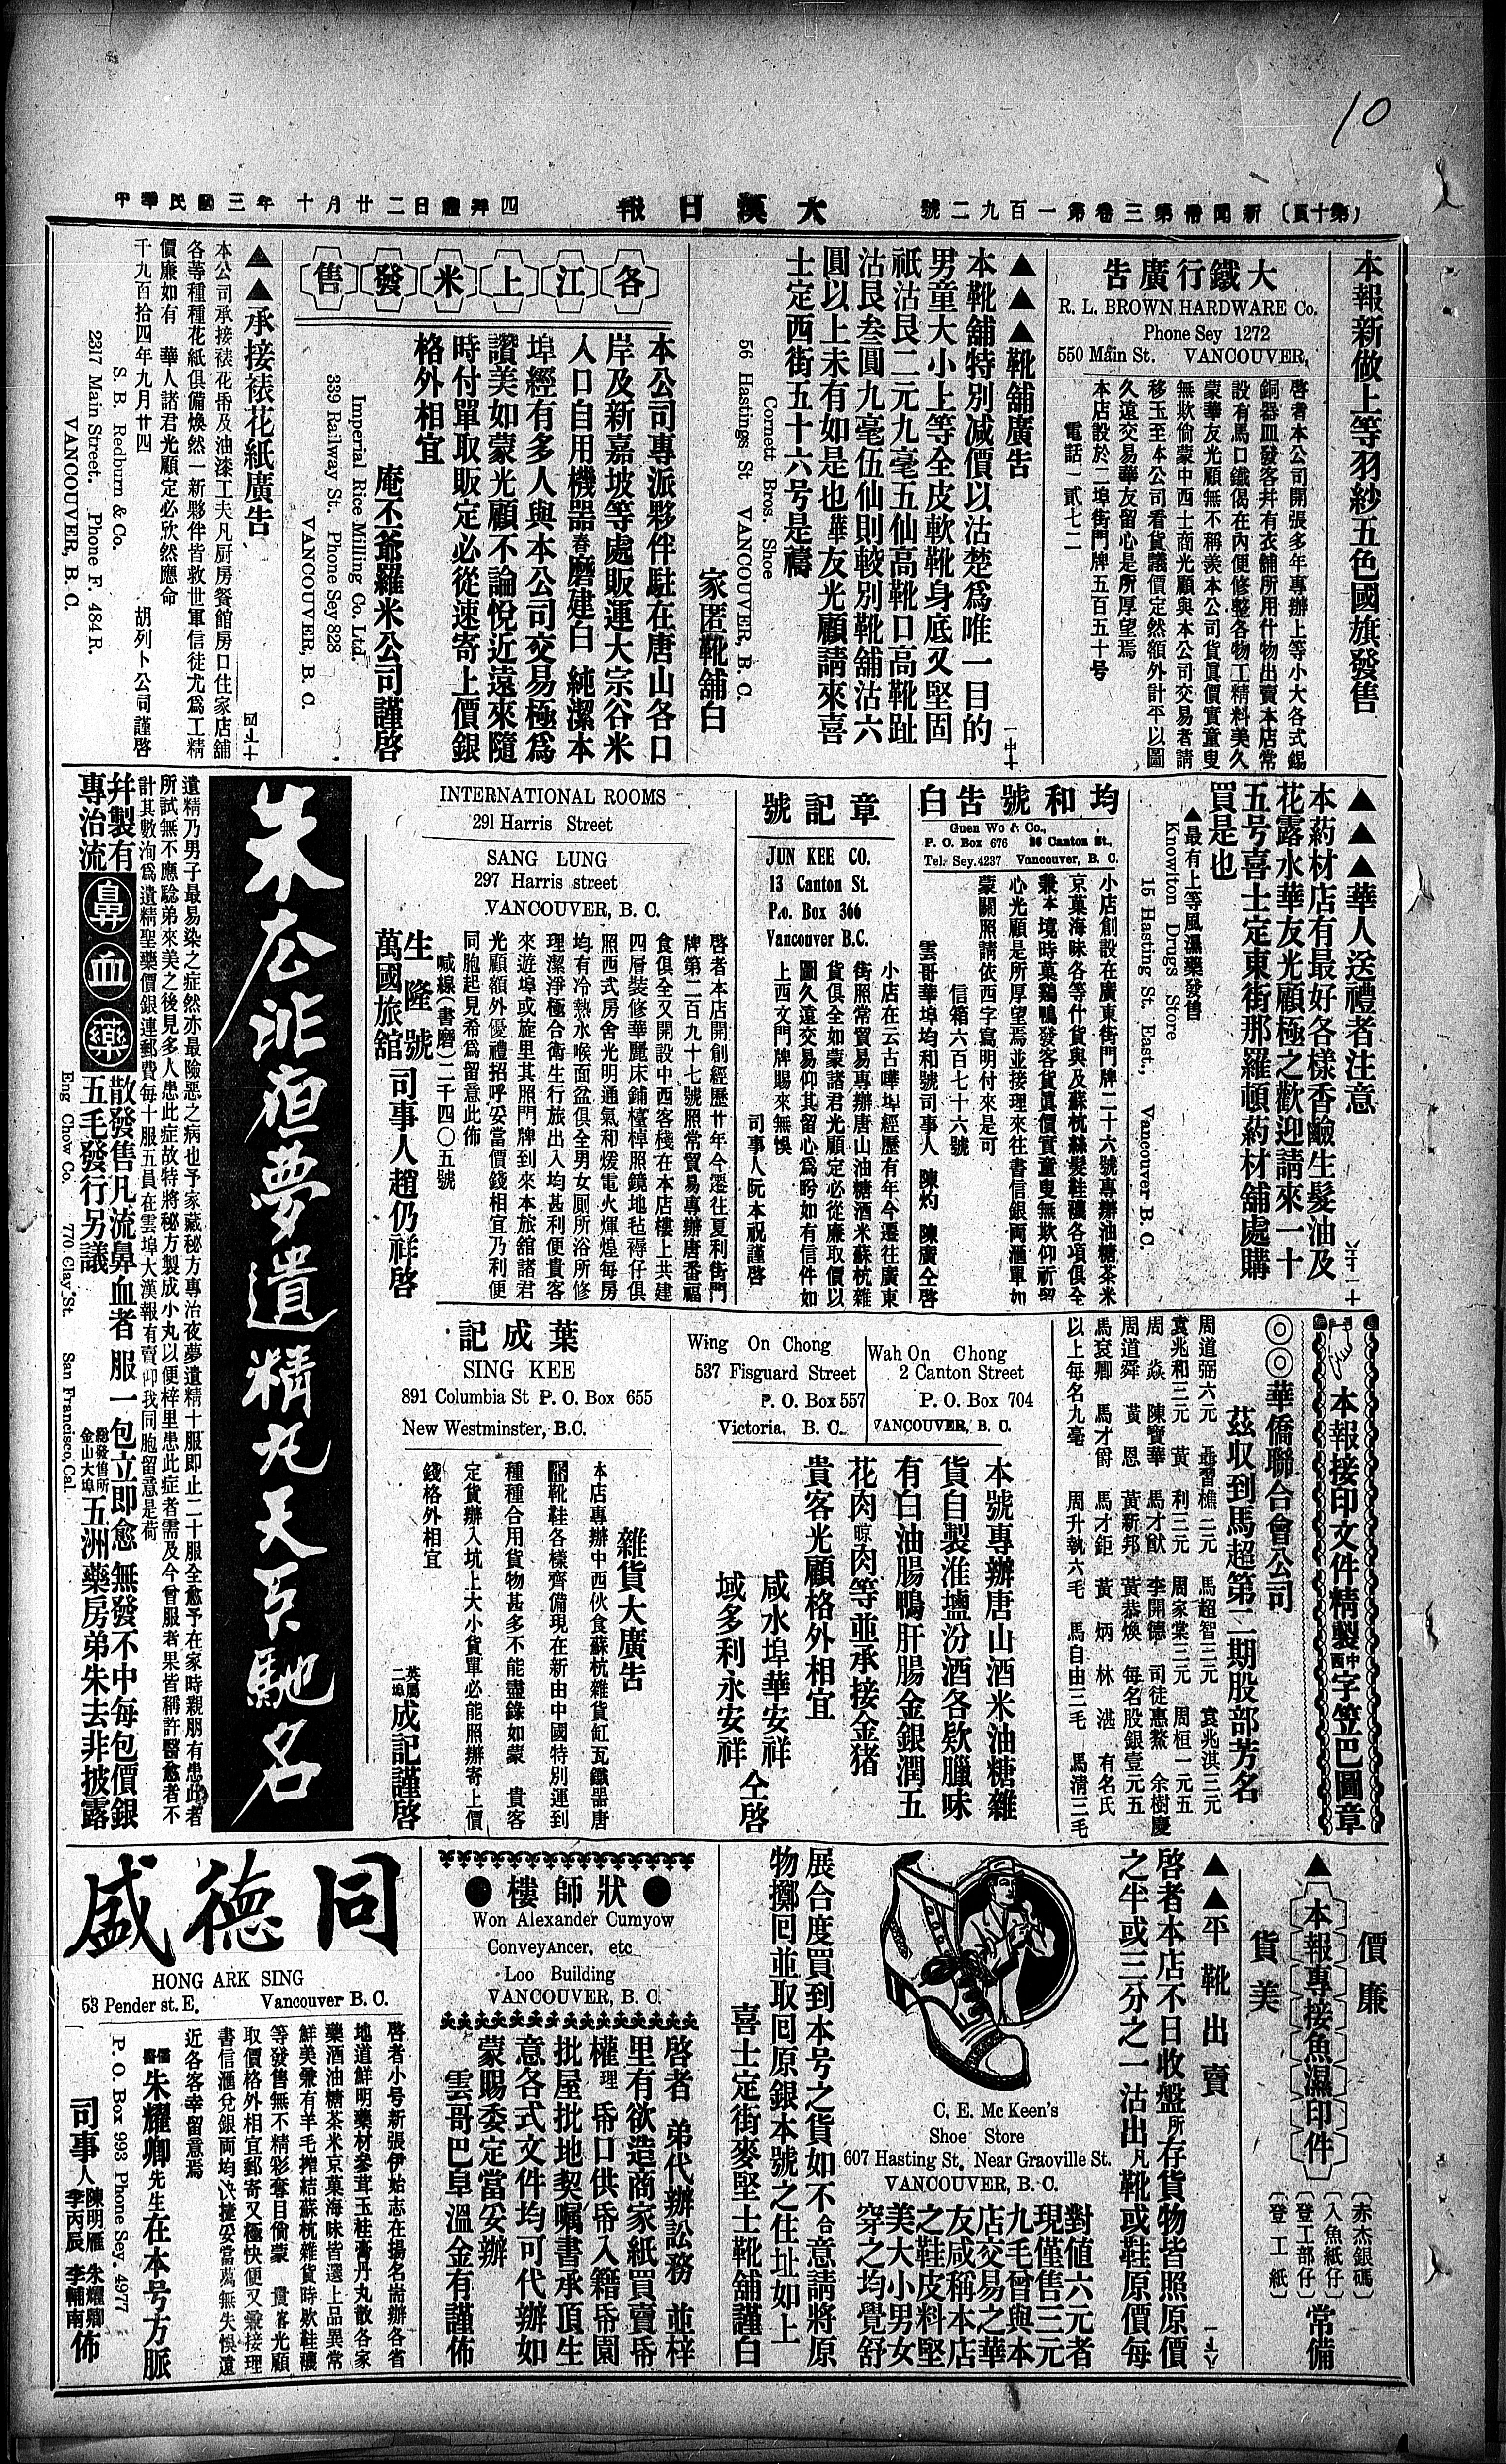 10
(第十頁) 新聞帋第三卷第一百九二號
大漢日報
中華民國三年十月廿二日禮拜四
本報新做上等羽紗五色國旗發售
大鐵行廣告
R. L. BROWN HARDWARE Co.
Phone Sey 1272
550 Main St. VANCOUVER,
啓者本公司開張多年專辦上等小大各式錫
銅器皿發客幷有衣舖所用什物出賣本店常
設有馬口鐵偈在內便修整各物工精料美久
蒙華友光顧無不稱羨本公司貨眞價實童叟
無欺倘蒙中西士商光顧與本公司交易者請
移玉至本公司看貨議價定然額外計平以圖
久遠交易華友留心是所厚望焉
本店設於二埠街門牌五百五十號
電話一貳七二
▲▲▲靴舖廣告
本靴舖特別減價以沽楚爲唯一目的
男童大小上等全皮軟靴身底又堅固
祇沽艮二元九毫五仙高靴口高靴趾
沽艮叁圓九毫伍仙則較別靴舖沽六
圓以上未有如是也華友光顧請來喜
士定西街五十六号是禱
家匿靴舖白
Cornett Bros. Shoe
56 Hastings St VANCOUVER, B. C.
各江上米發售
本公司專派夥伴駐在唐山各口
岸及新嘉坡等處販運大宗谷米
入口自用機器舂磨建白 純潔本
埠經有多人與本公司交易極爲
讚美如蒙光顧不論悅近遠來隨
時付單取販定必從速寄上價銀
格外相宜
庵丕爺羅米公司謹啓
Imperial Rice Milling Co. Ltd.
339 Railway St. Phone Sey 828
VANCOUVER, B. C.
▲▲承接裱花紙廣告
本公司承接裱花帋及油漆工夫凡厨房餐館房口住家店舖
各等種種花紙俱備煥然一新夥伴皆救世軍信徒尤爲工精
價廉如有 華人諸君光顧定必欣然應命
千九百拾四年九月廿四 胡列卜公司謹啓
S. B. Redburn & Co.
2317 Main Street. Phone F. 484 R.
VANCOUVER, B. C.
▲▲▲華人送禮者注意
本葯材店有最好各樣香鹼生髮油及
花露水華友光顧極之歡迎請來一十
五号喜士定東街那羅頓葯材舖處購
買是也
▲最有上等風濕藥發售
Knowlton Drugs Store
15 Hasting St. East., Vancouver B. C.
均和號告白
Guen Wo & Co.,
P. O. Box 676 26 Canton St.,
Tel. Sey. 4237 Vancouver, B. C.
小店創設在廣東街門牌二十六號專辦油糖茶米
京菓海味各等什貨與及蘇杭絲髮鞋襪各項俱全
兼本境時菓鷄鴨發客貨眞價實童叟無欺仰祈留
心光顧是所厚望焉並接理來往書信銀両滙單如
蒙關照請依西字寫明付來是可
信箱六百七十六號
雲哥華埠均和號司事人 陳灼 陳廣仝啓
章記號
JUN KEE CO.
13 Canton St.
P.o. Box 366
Vancouver B.C.
小店在云古嘩埠經歷有年今遷往廣東
街照常貿易專辦唐山油糖酒米蘇杭雜
貨俱全如蒙諸君光顧定必從廉取價以
圖久遠交易仰其留心爲盼如有信件如
上西文門牌賜來無悞
司事人阮本祝謹啓
INTERNATIONAL ROOMS
291 Harris Street
SANG LUNG
297 Harris street
VANCOUVER, B. C.
啓者本店開創經歷廿年今遷往夏利街門
牌第二百九十七號照常貿易專辦唐番福
食俱全又開設中西客棧在本店樓上共建
四層裝修華麗床鋪檯棹照鏡地毡褥仔俱
照西式房舍光明通氣和煖電火煇煌每房
均有冷熱水喉面盆俱全男女厠所浴所修
理潔淨極合衛生行旅出入均甚利便貴客
來遊埠或旋里其照門牌到來本旅舘諸君
光顧額外優禮招呼妥當價錢相宜乃利便
同胞起見希爲留意此佈
喊線(書磨)二千四〇五號
生隆號
萬國旅舘 司事人趙仍祥啓
朱家非夜夢遺精丸天下馳名
遺精乃男子最易染之症然亦最險惡之病也予家藏秘方專治夜夢遺精十服即止二十服全愈予在家時親朋有患此者
所試無不應騐弟來美之後見多人患此症故特將秘方製成小丸以便梓里患此症者需及今曾服者果皆稱許醫愈者不
計其數洵爲遺精聖藥價銀連郵費每十服五員在雲埠大漢報有賣仰我同胞留意是荷
幷製有專治流
鼻血藥
散發售凡流鼻血者 服一包立即愈 無發不中每包價銀
五毛發行另議
總發售所金山大埠 五洲藥房弟朱去非披露
Eng Chow Co. 770 Clay St. San Francisco, Cal.
本報接印文件精製中西字笠巴圖章
◎◎華僑聯合會公司
茲収到馬超第二期股部芳名
周道弼六元 聶習樵二元 馬超智三元 袁兆淇三元
袁兆和三元 黃 利三元 周家業三元 周桓一元五
周 焱 陳賢華 馬才猷 李開德 司徒惠鰲 余樹慶
周道舜 黃 恩 黃新邦 黃恭煥 每名股銀壹元五
馬袞卿 馬才爵 馬才鉅 黃 炳 林 湛 有名氏
以上每名九毫 周升執六毛 馬自由三毛 馬清三毛
Wah On Chong
2 Canton Street
P. O. Box 704
VANCOUVER, B. C.
Wing On Chong
537 Fisguard Street
P. O. Box 557
Victoria, B. C.
本號專辦唐山酒米油糖雜
貨自製淮塩汾酒各欵臘味
有白油腸鴨肝腸金銀潤五
花肉晾肉等並承接金猪
貴客光顧格外相宜
咸水埠華安祥
域多利永安祥 仝啓
葉成記
SING KEE
891 Columbia St P. O. Box 655
New Westminster, B.C.
雜貨大廣告
本店專辦中西伙食蘇杭雜貨缸瓦鐵器唐
靴鞋各樣齊備現在新由中國特別運到
種種合用貨物甚多不能盡錄如蒙 貴客
定貨辦入坑上大小貨單必能照辦寄上價
錢格外相宜
英屬二埠 成記謹啓
價廉
貨美
▲本報專接魚濕印件
(赤杰銀碼)
(入魚紙仔)
(登工部仔)
(登工紙)
常備
▲▲平靴出賣
啓者本店不日收盤所存貨物皆照原價
之半或三分之一沽出凡靴或鞋原價每
對值六元者
現僅售三元
九毛曾與本
店交易之華
友咸稱本店
之鞋皮料堅
美大小男女
穿之均覺舒
展合度買到本号之貨如不合意請將原
物擲囘並取囘原銀本號之住址如上
喜士定街麥堅士靴舖謹白
C. E. Mc Keen's
Shoe Store
607 Hasting St. Near Graoville St.
VANCOUVER, B. C.
狀師樓
Won Alexander Cumyow
ConveyAncer, etc
Loo Building
VANCOUVER, B. C.
啓者 弟代辦訟務 並梓
里有欲造商家紙買賣帋
權理帋口供帋入籍帋園
批屋批地契嘱書承頂生
意各式文件均可代辦如
蒙賜委定當妥辦
雲哥巴阜溫金有謹佈
同德盛
HONG ARK SING
53 Pender st. E. Vancouver B. C.
啓者小号新張伊始志在揚名耑辦各省
地道鮮明藥材參茸玉桂膏丹丸散各家
藥酒油糖茶米京菓海味皆選上品異常
鮮美兼有羊毛搾結蘇杭雜貨時欵鞋襪
等發售無不精彩奪目倘蒙 貴客光顧
取價格外相宜郵寄又極快便又兼接理
書信滙兌銀両均快捷妥當萬無失悞遠
近各客幸留意焉
儒醫朱耀卿先生在本号方脈
P. O. Box 993 Phone Sey. 4977
司事人 陳明雁 朱耀卿 李丙辰 李輔南 佈